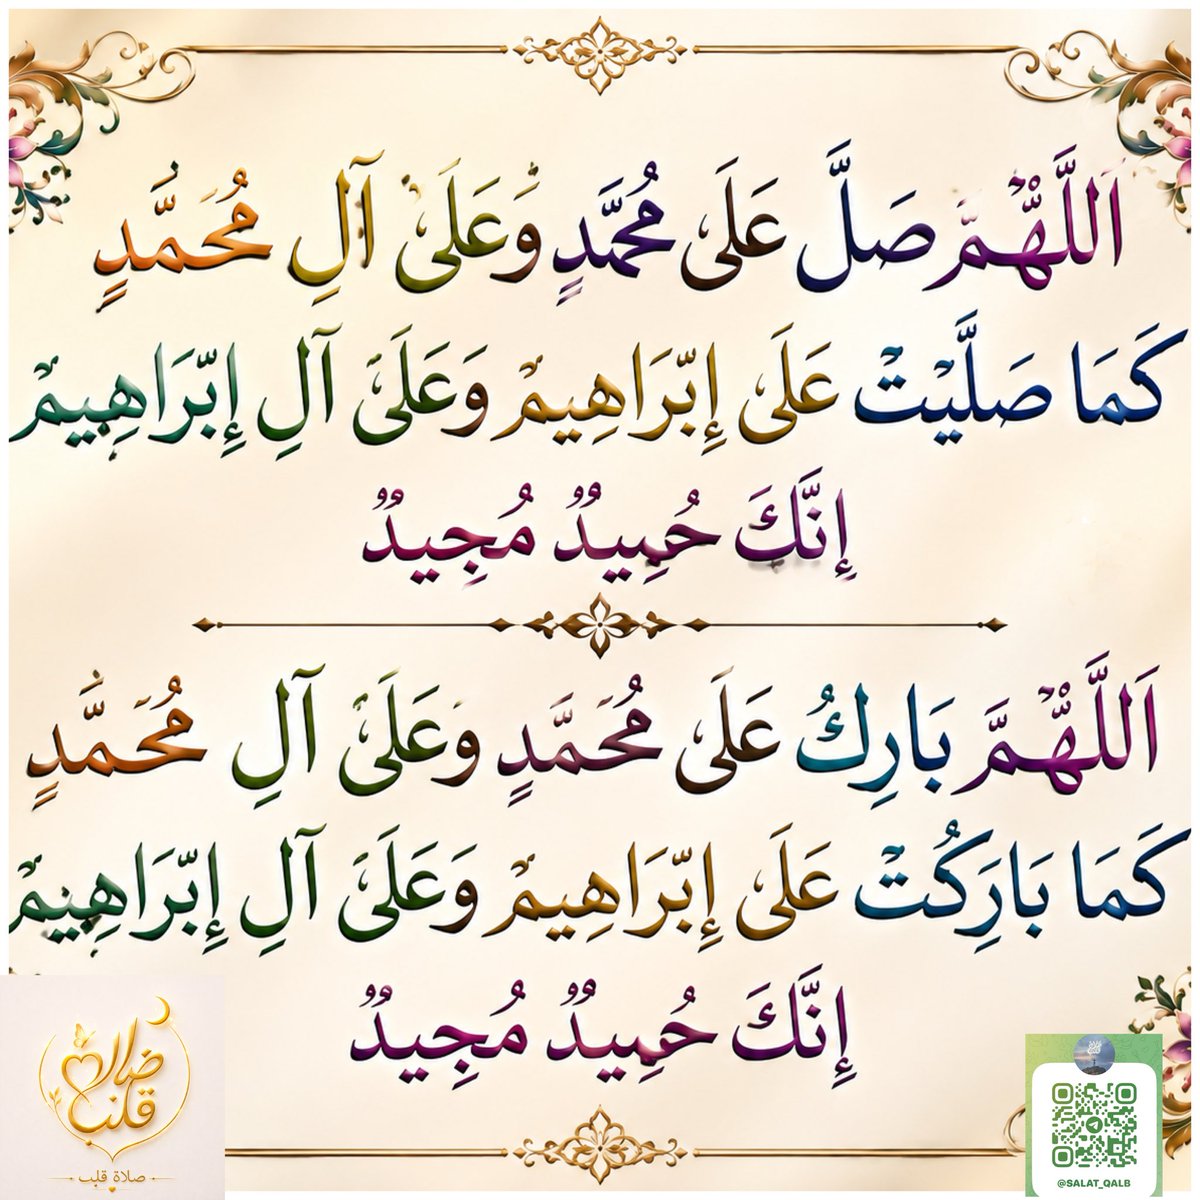 اَللَّهُمَّ صَلَّ عَلَى مُحَمَّدٍ وَعَلَىٰ آلِ مُحَمَّدٍ
كَمَا صَلَّيْتَ عَلَى إِبْرَاهِيمْ وَعَلَىٰ آلِ إِبْرَاهِيمْ
إِنَّكَ حُمِيدٌ مُجِيدٌ
اَللَّهُمَّ بَارِكُ عَلَى مُحَمَّدٍ وَعَلَىٰ آلِ مُحَمَّدٍ
كَمَا بَارَكُتْ عَلَى إِبْرَاهِيمْ وَعَلَىٰ آلِ إِبْرَاهِيمْ
إِنَّكَ حُمِيدٌ مُجِيدٌ
صلاة
قلب
صلاة قلب
@SALAT_QALB